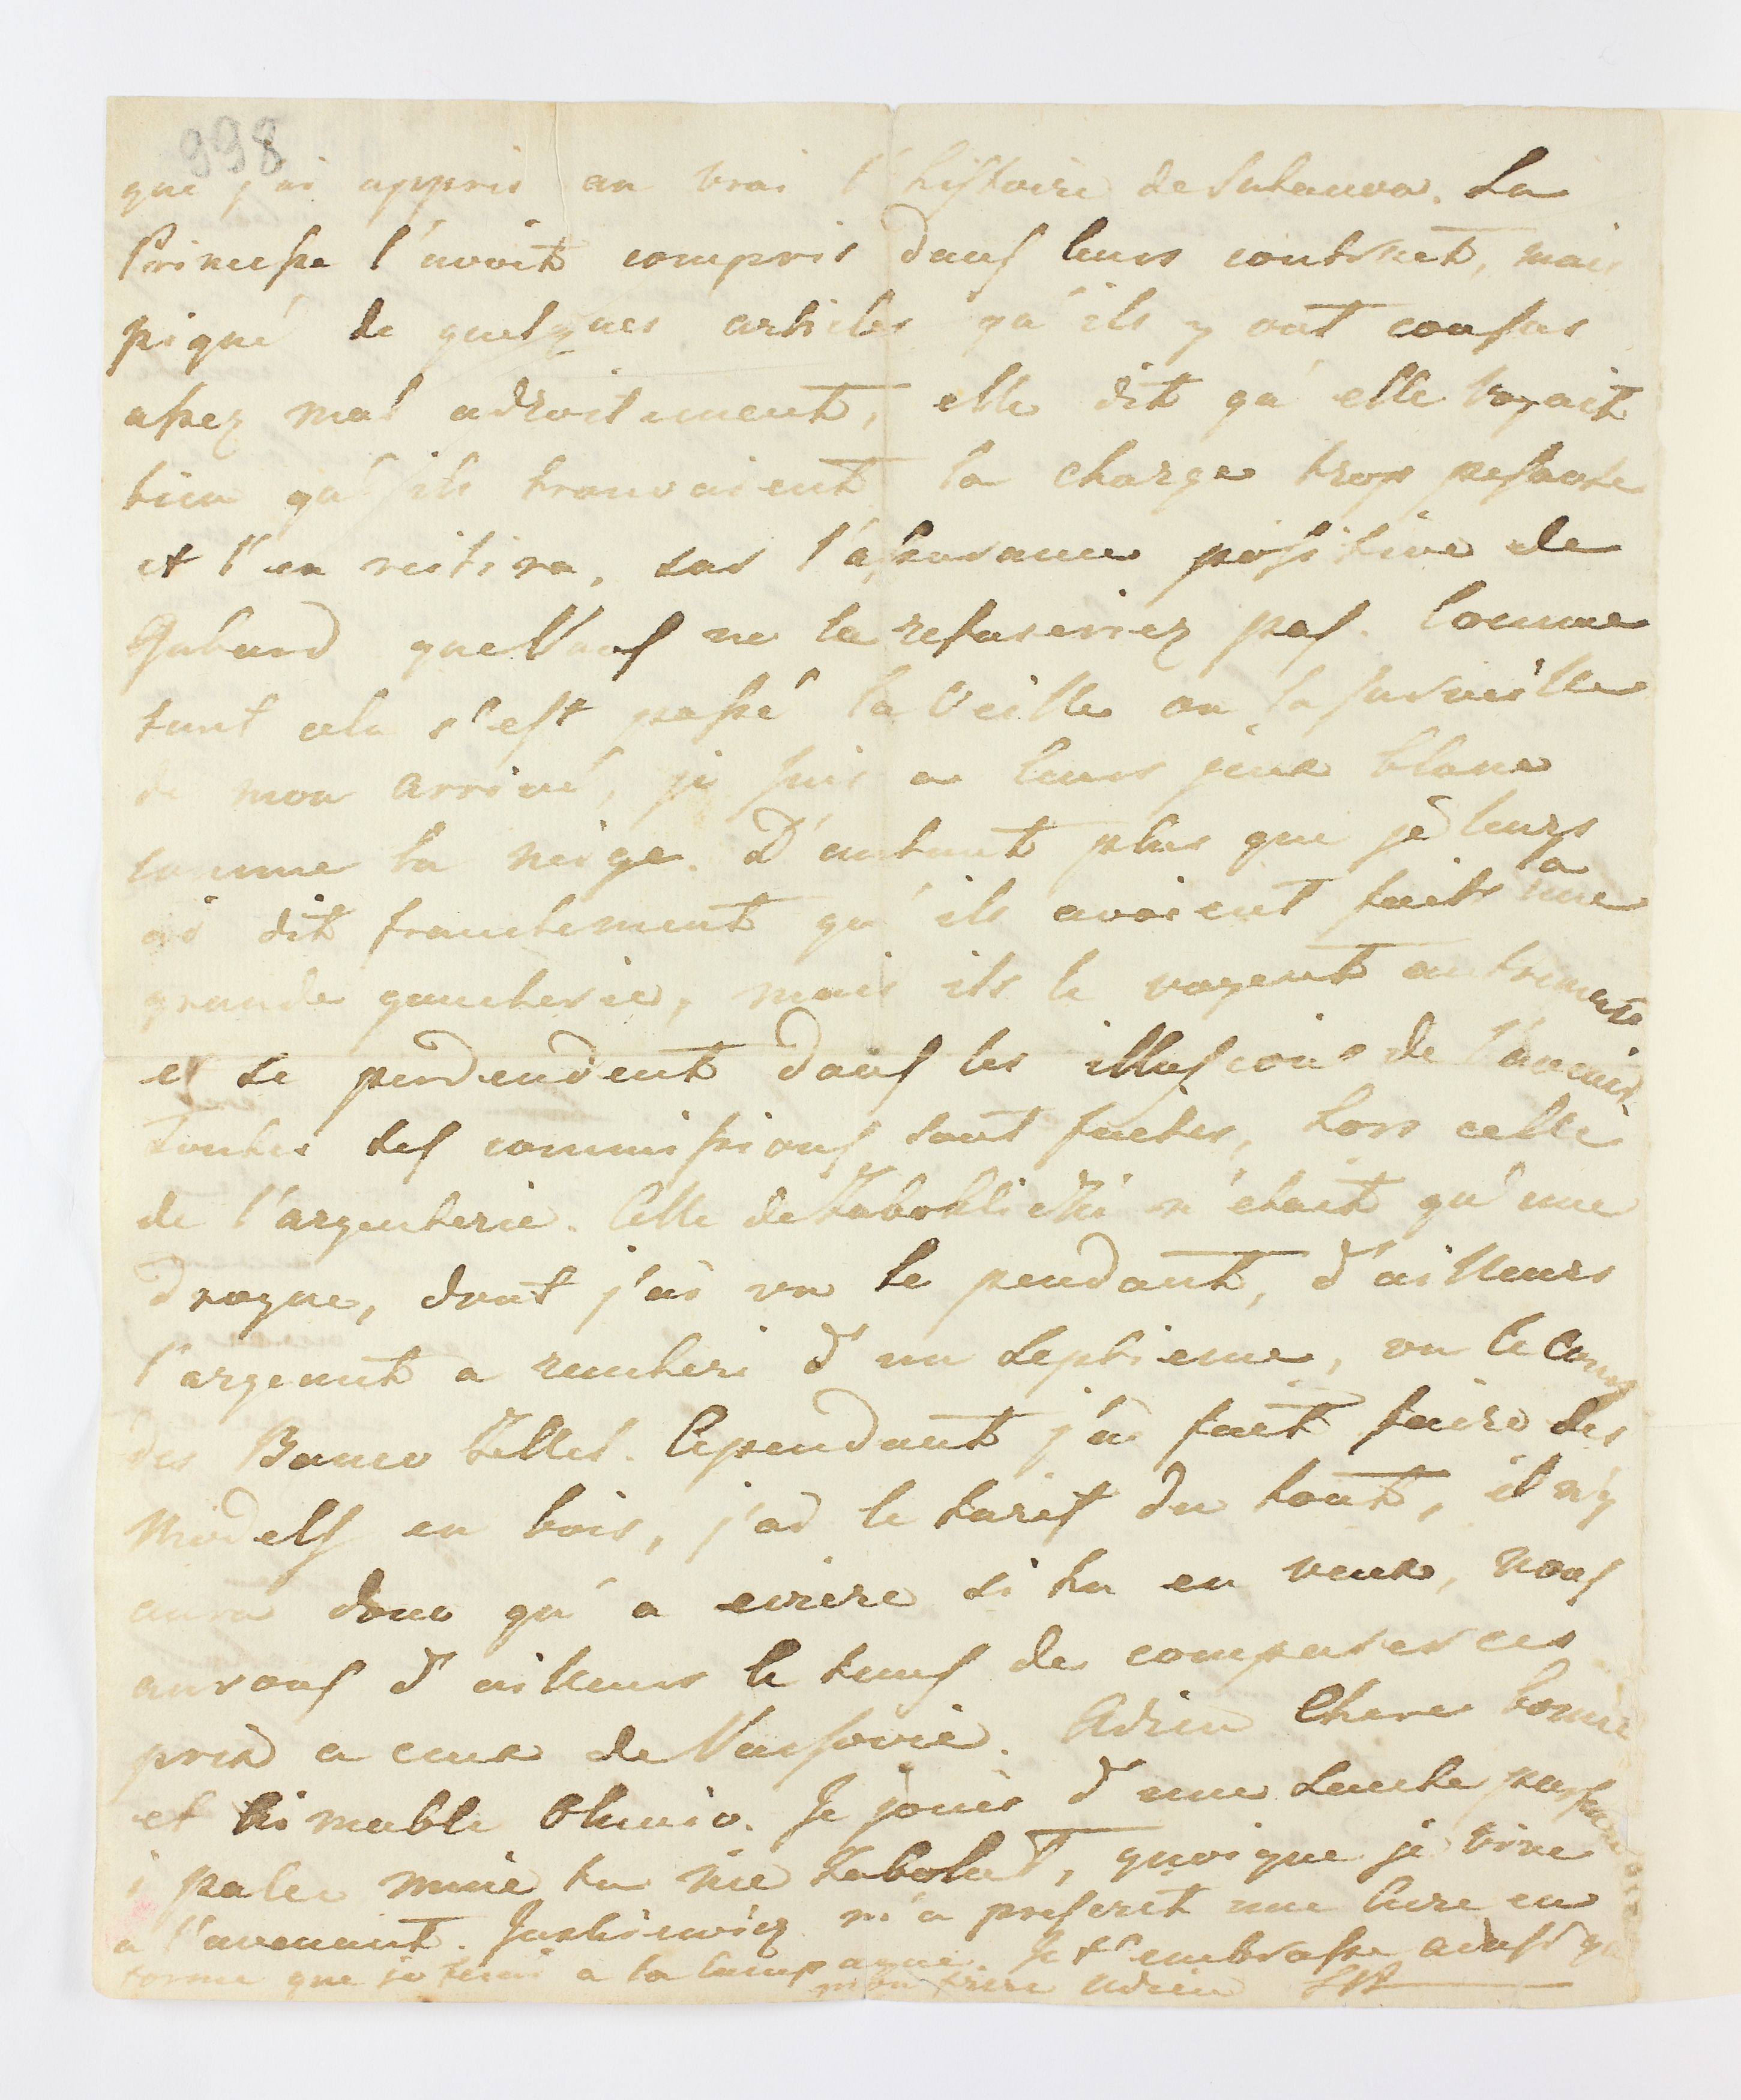 998
que j'ai appris au vrai l'histoire de Sulanova. La
Princesse l'avoit compris dans leurs contract, mais
piqué de quelques articles qu'ils y ont
assez mal adroitement, elle dit qu'elle voyait
bien qu'ils trouvaient la charge trop pesante
et l'en retira, sur l'assurance positive de
que Vous ne la refuseriez pas. Comme
tout cela s'est passé la Veille ou la surveille
de mon arrivé, je suis a leurs yeux blanc
comme la neige. D'autant plus que je leurs
ai dit franchement qu'ils avoient faits la une
grande gaucherie, mais ils le voyent autrement
et se perdendent dans les illusions de l'avenir.
Toutes tes commissions sont faites, hors celle
de l'argenterie. Celle de n'etait qu'une
drogue, dont j'ai vu le pendant, d'ailleurs
l'argent a rencheri d'un septieme, vu le cours
des Banco Zettel. Cependant j'ai fait faire des
models en bois, j'ai le tarif du tout, il n'y
aura donc qu'a ecrire si tu en veux, nous
aurons d'ailleurs le tems de comparer ces
prix a ceux de Varsovie. Adieu Chere bonne
et Aimable Olunio. Je jouis d'une sante parfaite
i palec mnie tu nie zabolał, quoique je vive
a l'avenant. m'a preferet une Cure en
forme que je ferai a la Campagne. Je t'embrasse ainsi que
mon frere Adieu